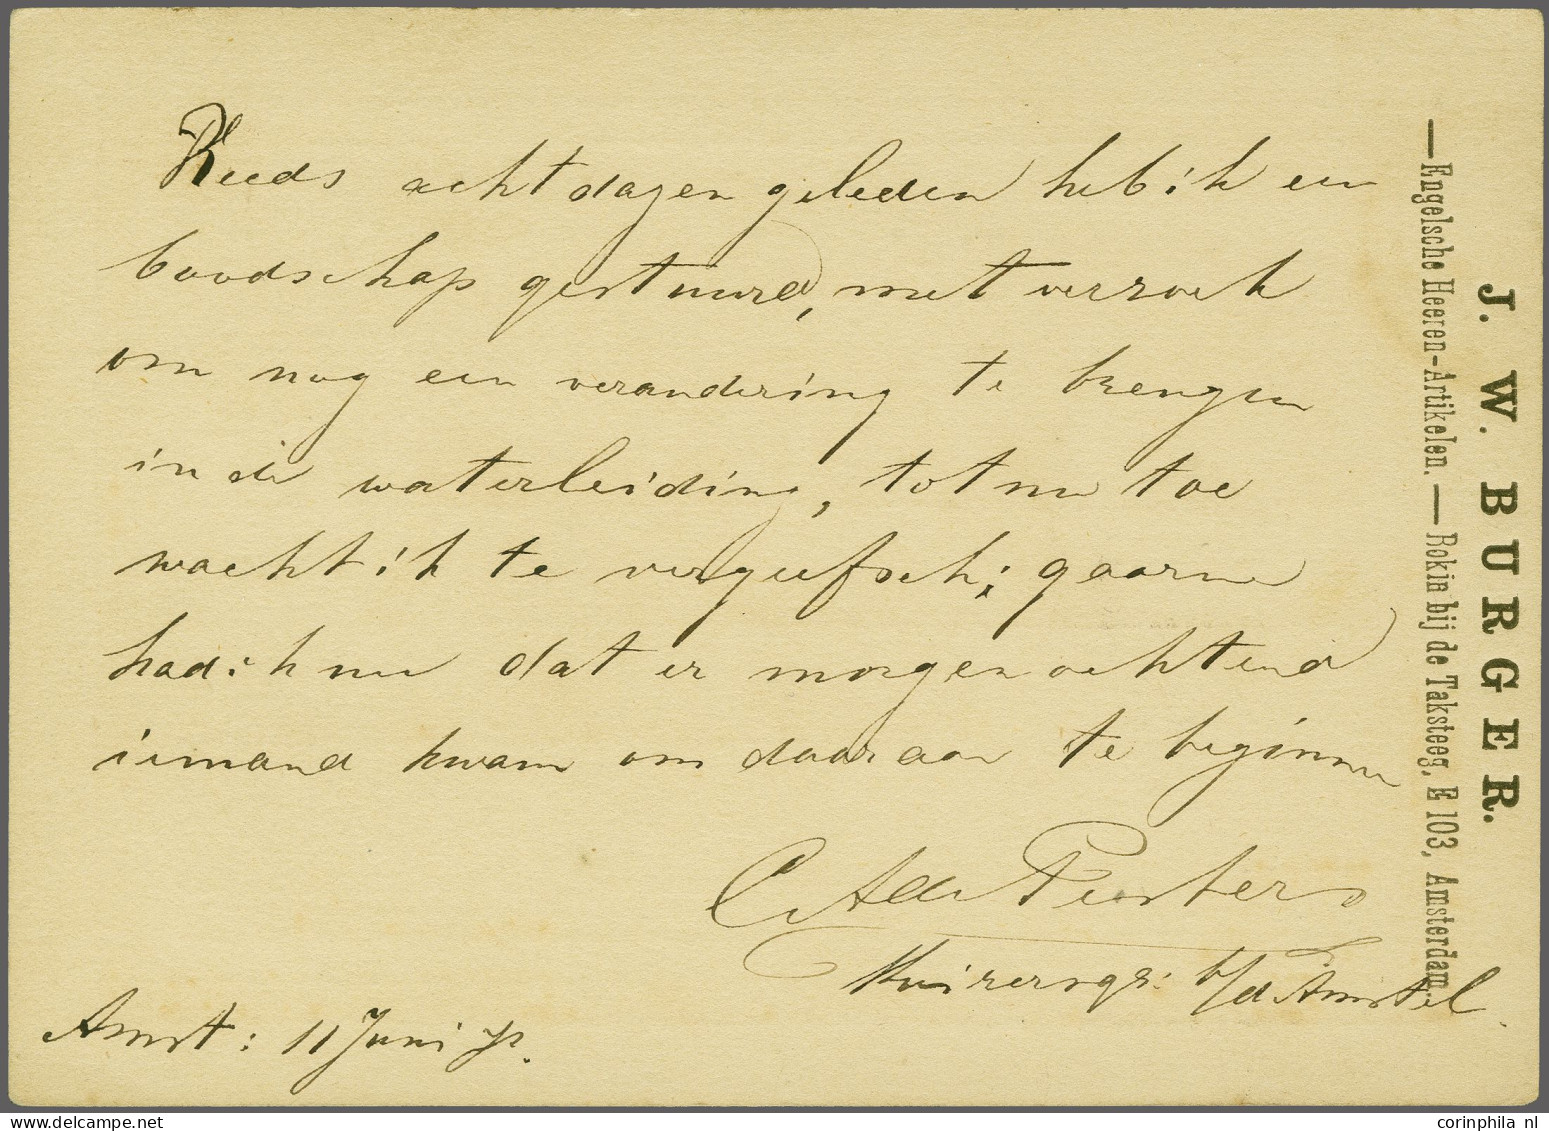 Reeds acht dagen geleden heb ik een
boodschap gestuurd, met verzoek
om nog een verandering te brengen
in de waterleiding, tot nu toe
wacht ik te vergeefsch; gaarne
had ik nu dat er morgen ochtend
iemand kwam om daaraan te beginnen
Keizersgr: b/d Amstel.
Amst: 11 Juni
J. W. BURGER.
—Engelsche Heeren-Artikelen. — Rokin bij de Taksteeg, E 103, Amsterdam.
corinphila nl